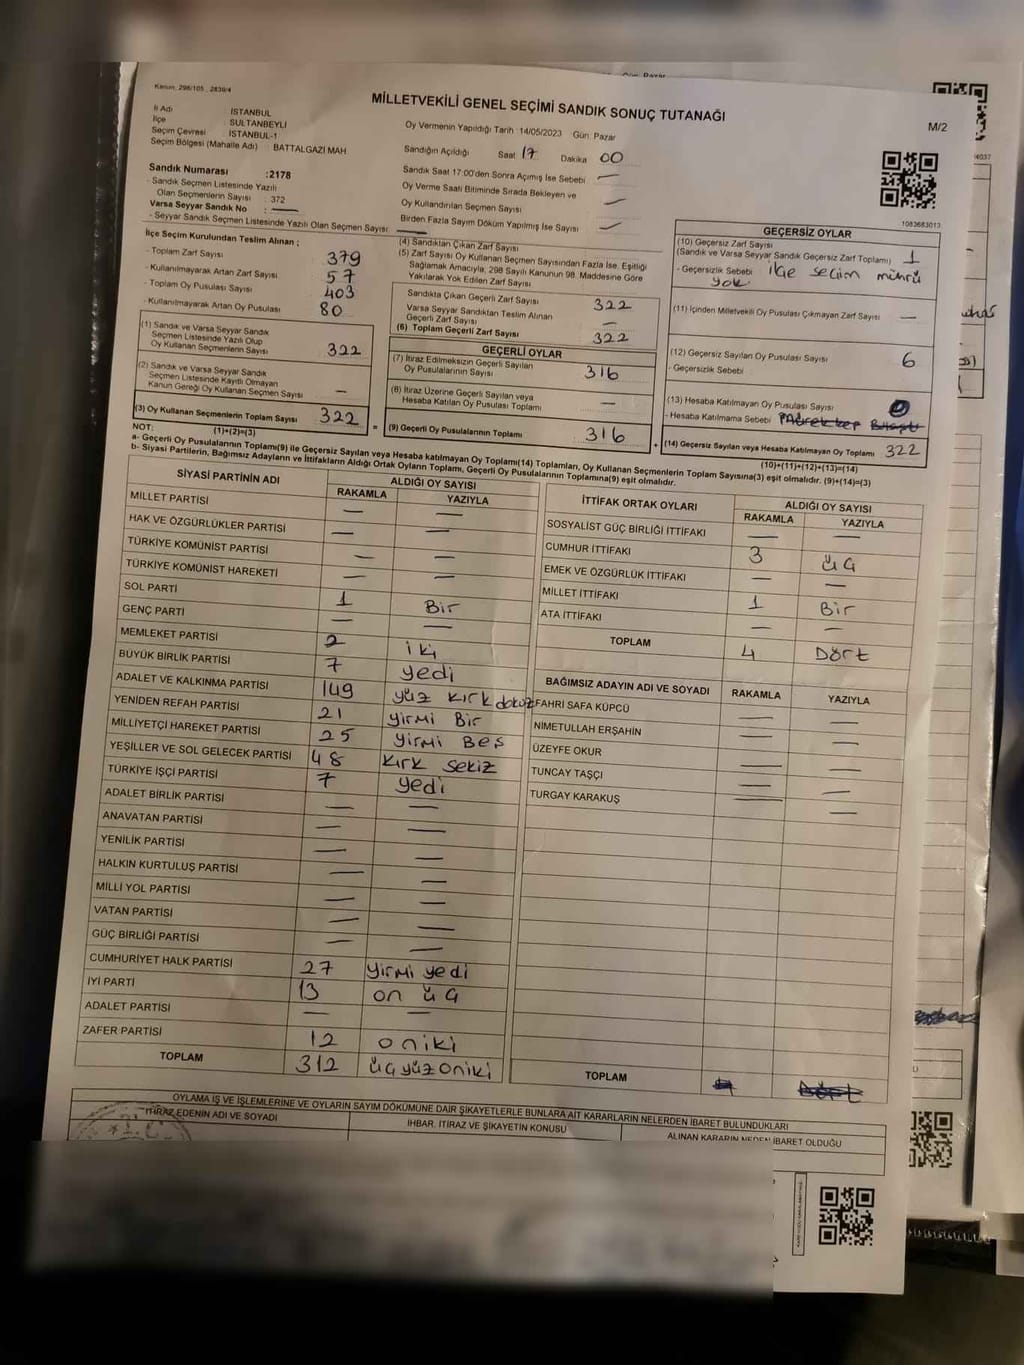 Kanun, 298/105 , 2839/4
MİLLETVEKİLİ GENEL SEÇİMİ SANDIK SONUÇ TUTANAĞI
M/2
İl Adı İSTANBUL
İlçe SULTANBEYLİ
Seçim Çevresi İSTANBUL-1
Seçim Bölgesi (Mahalle Adı) : BATTALGAZİ MAH
Oy Vermenin Yapıldığı Tarih :14/05/2023 Gün: Pazar
Sandığın Açıldığı Saat 17 Dakika 00
Sandık Saat 17:00'den Sonra Açımış İse Sebebi —
Oy Verme Saati Bitiminde Sırada Bekleyen ve
Oy Kullandırılan Seçmen Sayısı —
Birden Fazla Sayım Döküm Yapılmış İse Sayısı —
Sandık Numarası :2178
- Sandık Seçmen Listesinde Yazılı
Olan Seçmenlerin Sayısı : 372
Varsa Seyyar Sandık No : —
- Seyyar Sandık Seçmen Listesinde Yazılı Olan Seçmen Sayısı: —
1083683013
İlçe Seçim Kurulundan Teslim Alınan ;
- Toplam Zarf Sayısı 379
- Kullanılmayarak Artan Zarf Sayısı 57
- Toplam Oy Pusulası Sayısı 403
- Kullanılmayarak Artan Oy Pusulası 80
(1) Sandık ve Varsa Seyyar Sandık
Seçmen Listesinde Yazılı Olup
Oy Kullanan Seçmenlerin Sayısı 322
(2) Sandık ve Varsa Seyyar Sandık
Seçmen Listesinde Kayıtlı Olmayan
Kanun Gereği Oy Kullanan Seçmen Sayısı —
(3) Oy Kullanan Seçmenlerin Toplam Sayısı 322
(1)+(2)=(3)
(4) Sandıktan Çıkan Zarf Sayısı
(5) Zarf Sayısı Oy Kullanan Seçmen Sayısından Fazla İse, Eşitliği
Sağlamak Amacıyla, 298 Sayılı Kanunun 98. Maddesine Göre
Yakılarak Yok Edilen Zarf Sayısı
Sandıkta Çıkan Geçerli Zarf Sayısı 322
Varsa Seyyar Sandıktan Teslim Alınan
Geçerli Zarf Sayısı —
(6) Toplam Geçerli Zarf Sayısı 322
GEÇERLİ OYLAR
(7) İtiraz Edilmeksizin Geçerli Sayılan
Oy Pusulalarının Sayısı 316
(8) İtiraz Üzerine Geçerli Sayılan veya
Hesaba Katılan Oy Pusulası Toplamı —
= (9) Geçerli Oy Pusulalarının Toplamı 316
GEÇERSİZ OYLAR
(10) Geçersiz Zarf Sayısı
(Sandık ve Varsa Seyyar Sandık Geçersiz Zarf Toplamı) 1
- Geçersizlik Sebebi ilçe seçim mührü
yok.
(11) İçinden Milletvekili Oy Pusulası Çıkmayan Zarf Sayısı —
(12) Geçersiz Sayılan Oy Pusulası Sayısı 6
- Geçersizlik Sebebi
(13) Hesaba Katılmayan Oy Pusulası Sayısı
- Hesaba Katılmama Sebebi
+ (14) Geçersiz Sayılan veya Hesaba Katılmayan Oy Toplamı 322
(10)+(11)+(12)+(13)=(14)
NOT:
a- Geçerli Oy Pusulalarının Toplamı(9) ile Geçersiz Sayılan veya Hesaba Katılmayan Oy Toplamı(14) Toplamları, Oy Kullanan Seçmenlerin Toplam Sayısına(3) eşit olmalıdır. (9)+(14)=(3)
b- Siyasi Partilerin, Bağımsız Adayların ve İttifakların Aldığı Ortak Oyların Toplamı, Geçerli Oy Pusulalarının Toplamına(9) eşit olmalıdır.
SİYASİ PARTİNİN ADI ALDIĞI OY SAYISI
RAKAMLA YAZIYLA
MİLLET PARTİSİ — —
HAK VE ÖZGÜRLÜKLER PARTİSİ — —
TÜRKİYE KOMÜNİST PARTİSİ — —
TÜRKİYE KOMÜNİST HAREKETİ — —
SOL PARTİ 1 Bir
GENÇ PARTİ — —
MEMLEKET PARTİSİ 2 iki
BÜYÜK BİRLİK PARTİSİ 7 yedi
ADALET VE KALKINMA PARTİSİ 149 yüz kırk dokuz
YENİDEN REFAH PARTİSİ 21 yirmi Bir
MİLLİYETÇİ HAREKET PARTİSİ 25 yirmi Beş
YEŞİLLER VE SOL GELECEK PARTİSİ 48 kırk sekiz
TÜRKİYE İŞÇİ PARTİSİ 7 yedi
ADALET BİRLİK PARTİSİ — —
ANAVATAN PARTİSİ — —
YENİLİK PARTİSİ — —
HALKIN KURTULUŞ PARTİSİ — —
MİLLİ YOL PARTİSİ — —
VATAN PARTİSİ — —
GÜÇ BİRLİĞİ PARTİSİ — —
CUMHURİYET HALK PARTİSİ 27 yirmi yedi
İYİ PARTİ 13 on üç
ADALET PARTİSİ — —
ZAFER PARTİSİ 12 oniki
TOPLAM 312 üçyüzoniki
İTTİFAK ORTAK OYLARI ALDIĞI OY SAYISI
RAKAMLA YAZIYLA
SOSYALİST GÜÇ BİRLİĞİ İTTİFAKI — —
CUMHUR İTTİFAKI 3 üç
EMEK VE ÖZGÜRLÜK İTTİFAKI — —
MİLLET İTTİFAKI 1 Bir
ATA İTTİFAKI — —
TOPLAM 4 Dört
BAĞIMSIZ ADAYIN ADI VE SOYADI RAKAMLA YAZIYLA
FAHRİ SAFA KÜPCÜ — —
NİMETULLAH ERŞAHİN — —
ÜZEYFE OKUR — —
TUNCAY TAŞÇI — —
TURGAY KARAKUŞ — —
TOPLAM
OYLAMA İŞ VE İŞLEMLERİNE VE OYLARIN SAYIM DÖKÜMÜNE DAİR ŞİKAYETLERLE BUNLARA AİT KARARLARIN NELERDEN İBARET BULUNDUKLARI
İTİRAZ EDENİN ADI VE SOYADI İHBAR, İTİRAZ VE ŞİKAYETİN KONUSU ALINAN KARARIN NEDEN İBARET OLDUĞU